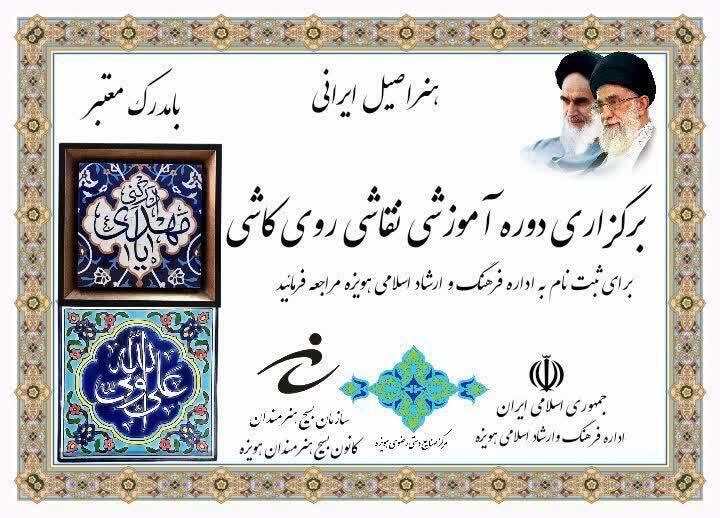 هنر اصیل ایرانی
بامدرک معتبر
برگزاری دوره آموزشی نقاشی روی کاشی
برای ثبت نام به اداره فرهنگ و ارشاد اسلامی هویزه مراجعه فرمائید
یا مهدی ادرکنی
علی ولی الله
جمهوری اسلامی ایران
اداره فرهنگ وارشاد اسلامی هویزه
مرکز صنایع دستی رضوی هویزه
سازمان بسیج هنرمندان
کانون بسیج هنرمندان هویزه